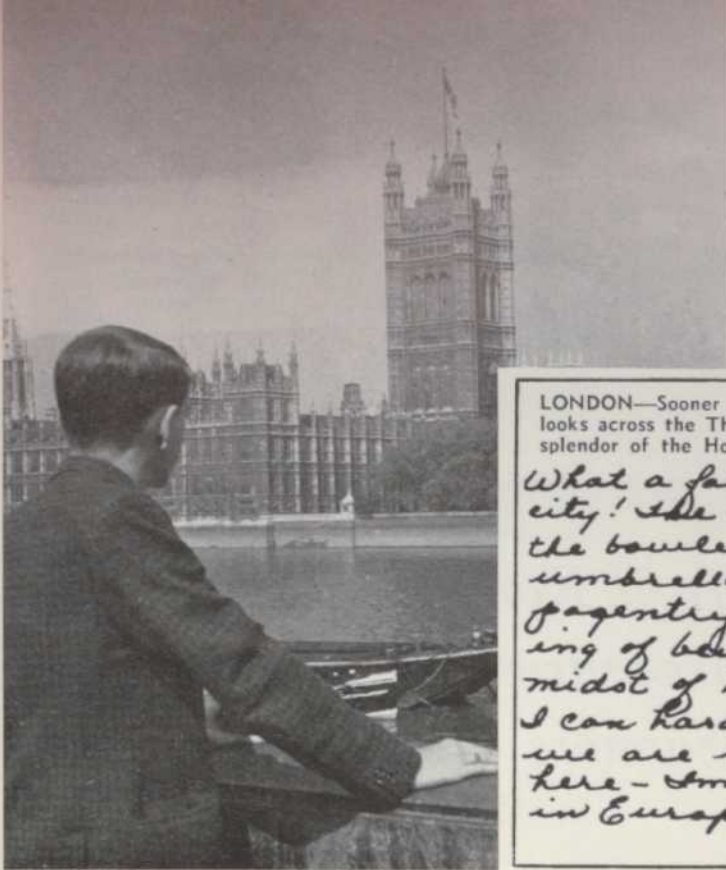 LONDON—Sooner
looks across the Th
splendor of the Ho
What a fa
city! The
the bowle
umbrell
pagentry
ing of be
midst of
I can hard
we are
here - 
in Europ